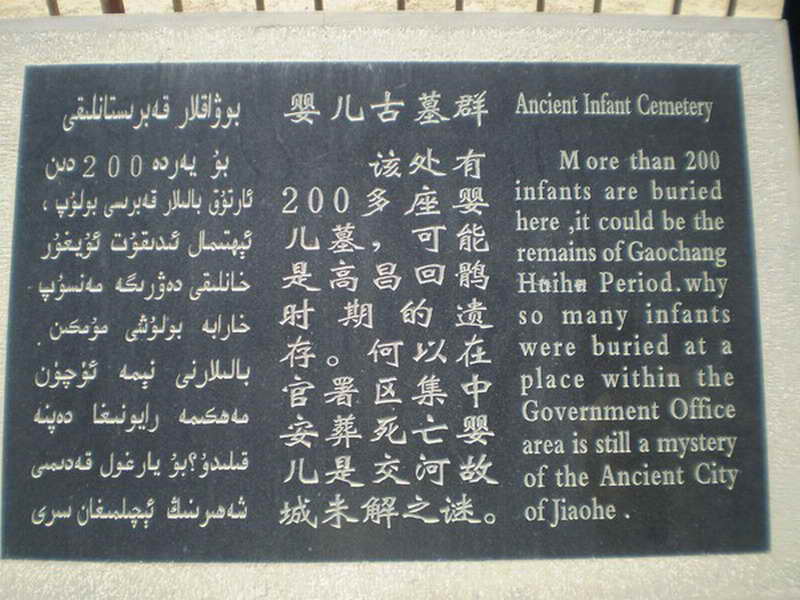 بوۋاقلار قەبرىستانلىقى
بۇ يەردە 200 دىن
ئارتۇق بالىلار قەبرىسى بولۇپ ،
ئېھتىمال ئىدىقۇت ئۇيغۇر
خانلىقى دەۋرىگە مەنسۇپ
خارابە بولۇشى مۇمكىن .
بالىلارنى نېمە ئۈچۈن
مەھكىمە رايونىغا دەپنە
قىلىدۇ؟بۇ يارغول قەدىمىي
شەھىرىنىڭ ئېچىلمىغان سىرى
婴儿古墓群
该处有
200多座婴
儿墓，可能
是高昌回鹘
时期的遗
存。何以在
官署区集中
安葬死亡婴
儿是交河故
城未解之谜。
Ancient Infant Cemetery
More than 200
infants are buried
here ,it could be the
remains of Gaochang
Huihu Period.why
so many infants
were buried at a
place within the
Government Office
area is still a mystery
of the Ancient City
of Jiaohe .